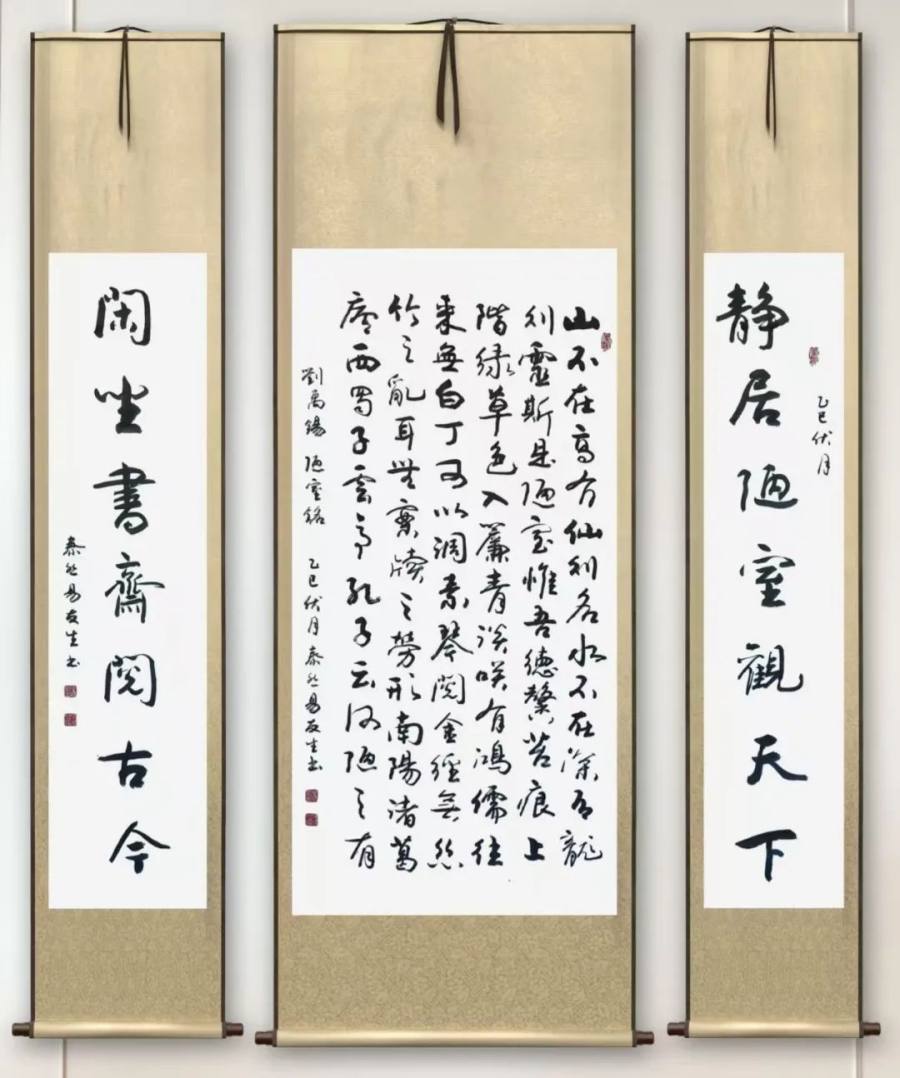 静居陋室觀天下
乙巳伏月
山不在高有仙則名水不在深有龍
則靈斯是陋室惟吾德馨苔痕上
階綠草色入簾青談咲有鴻儒往
來無白丁可以調素琴閱金經無絲
竹之亂耳無案牘之勞形南陽諸葛
廬西蜀子雲亭孔子云何陋之有
劉禹錫 陋室銘 乙巳伏月 泰然易友生书
閑坐書齋閱古今
泰然易友生书